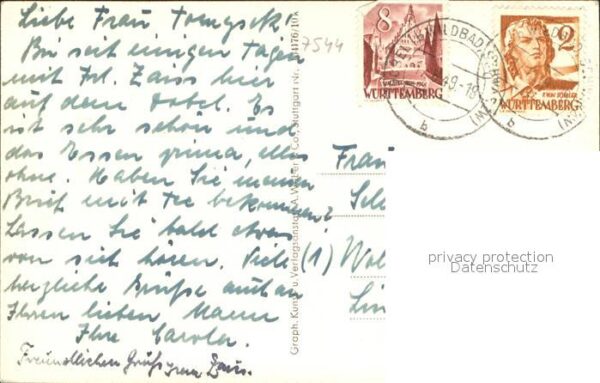 Liebe Frau Tomysek!
Bin seit einigen Tagen
mit Frl. Zaiss hier
auf dem Dobel. Es
ist sehr schön und
das Essen prima, alles
ohne. Haben Sie meinen
Brief mit Tee bekommen?
Lassen Sie bald etwas
von sich hören. Viele
herzliche Grüße auch an
Ihren lieben Mann
Ihre Carola.
Freundlichen Gruß Zaiss.
7544
Graph. Kunst- u. Verlagsanstalt A. Weber & Co., Stuttgart Nr.
8
WÜRTTEMBERG
2
WÜRTTEMBERG
WILDBAD
b
b
Frau
(1)
Lin
privacy protection
Datenschutz